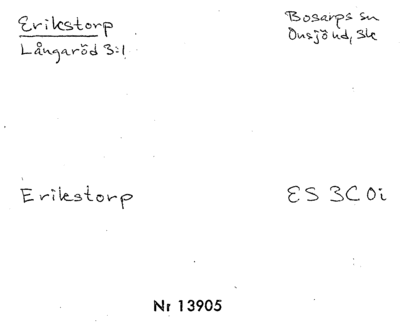 Erikstorp
Långaröd 3:1
Bosarps sn
Onsjö hd, Sk
Erikstorp
ES 3C0i
Nr 13905